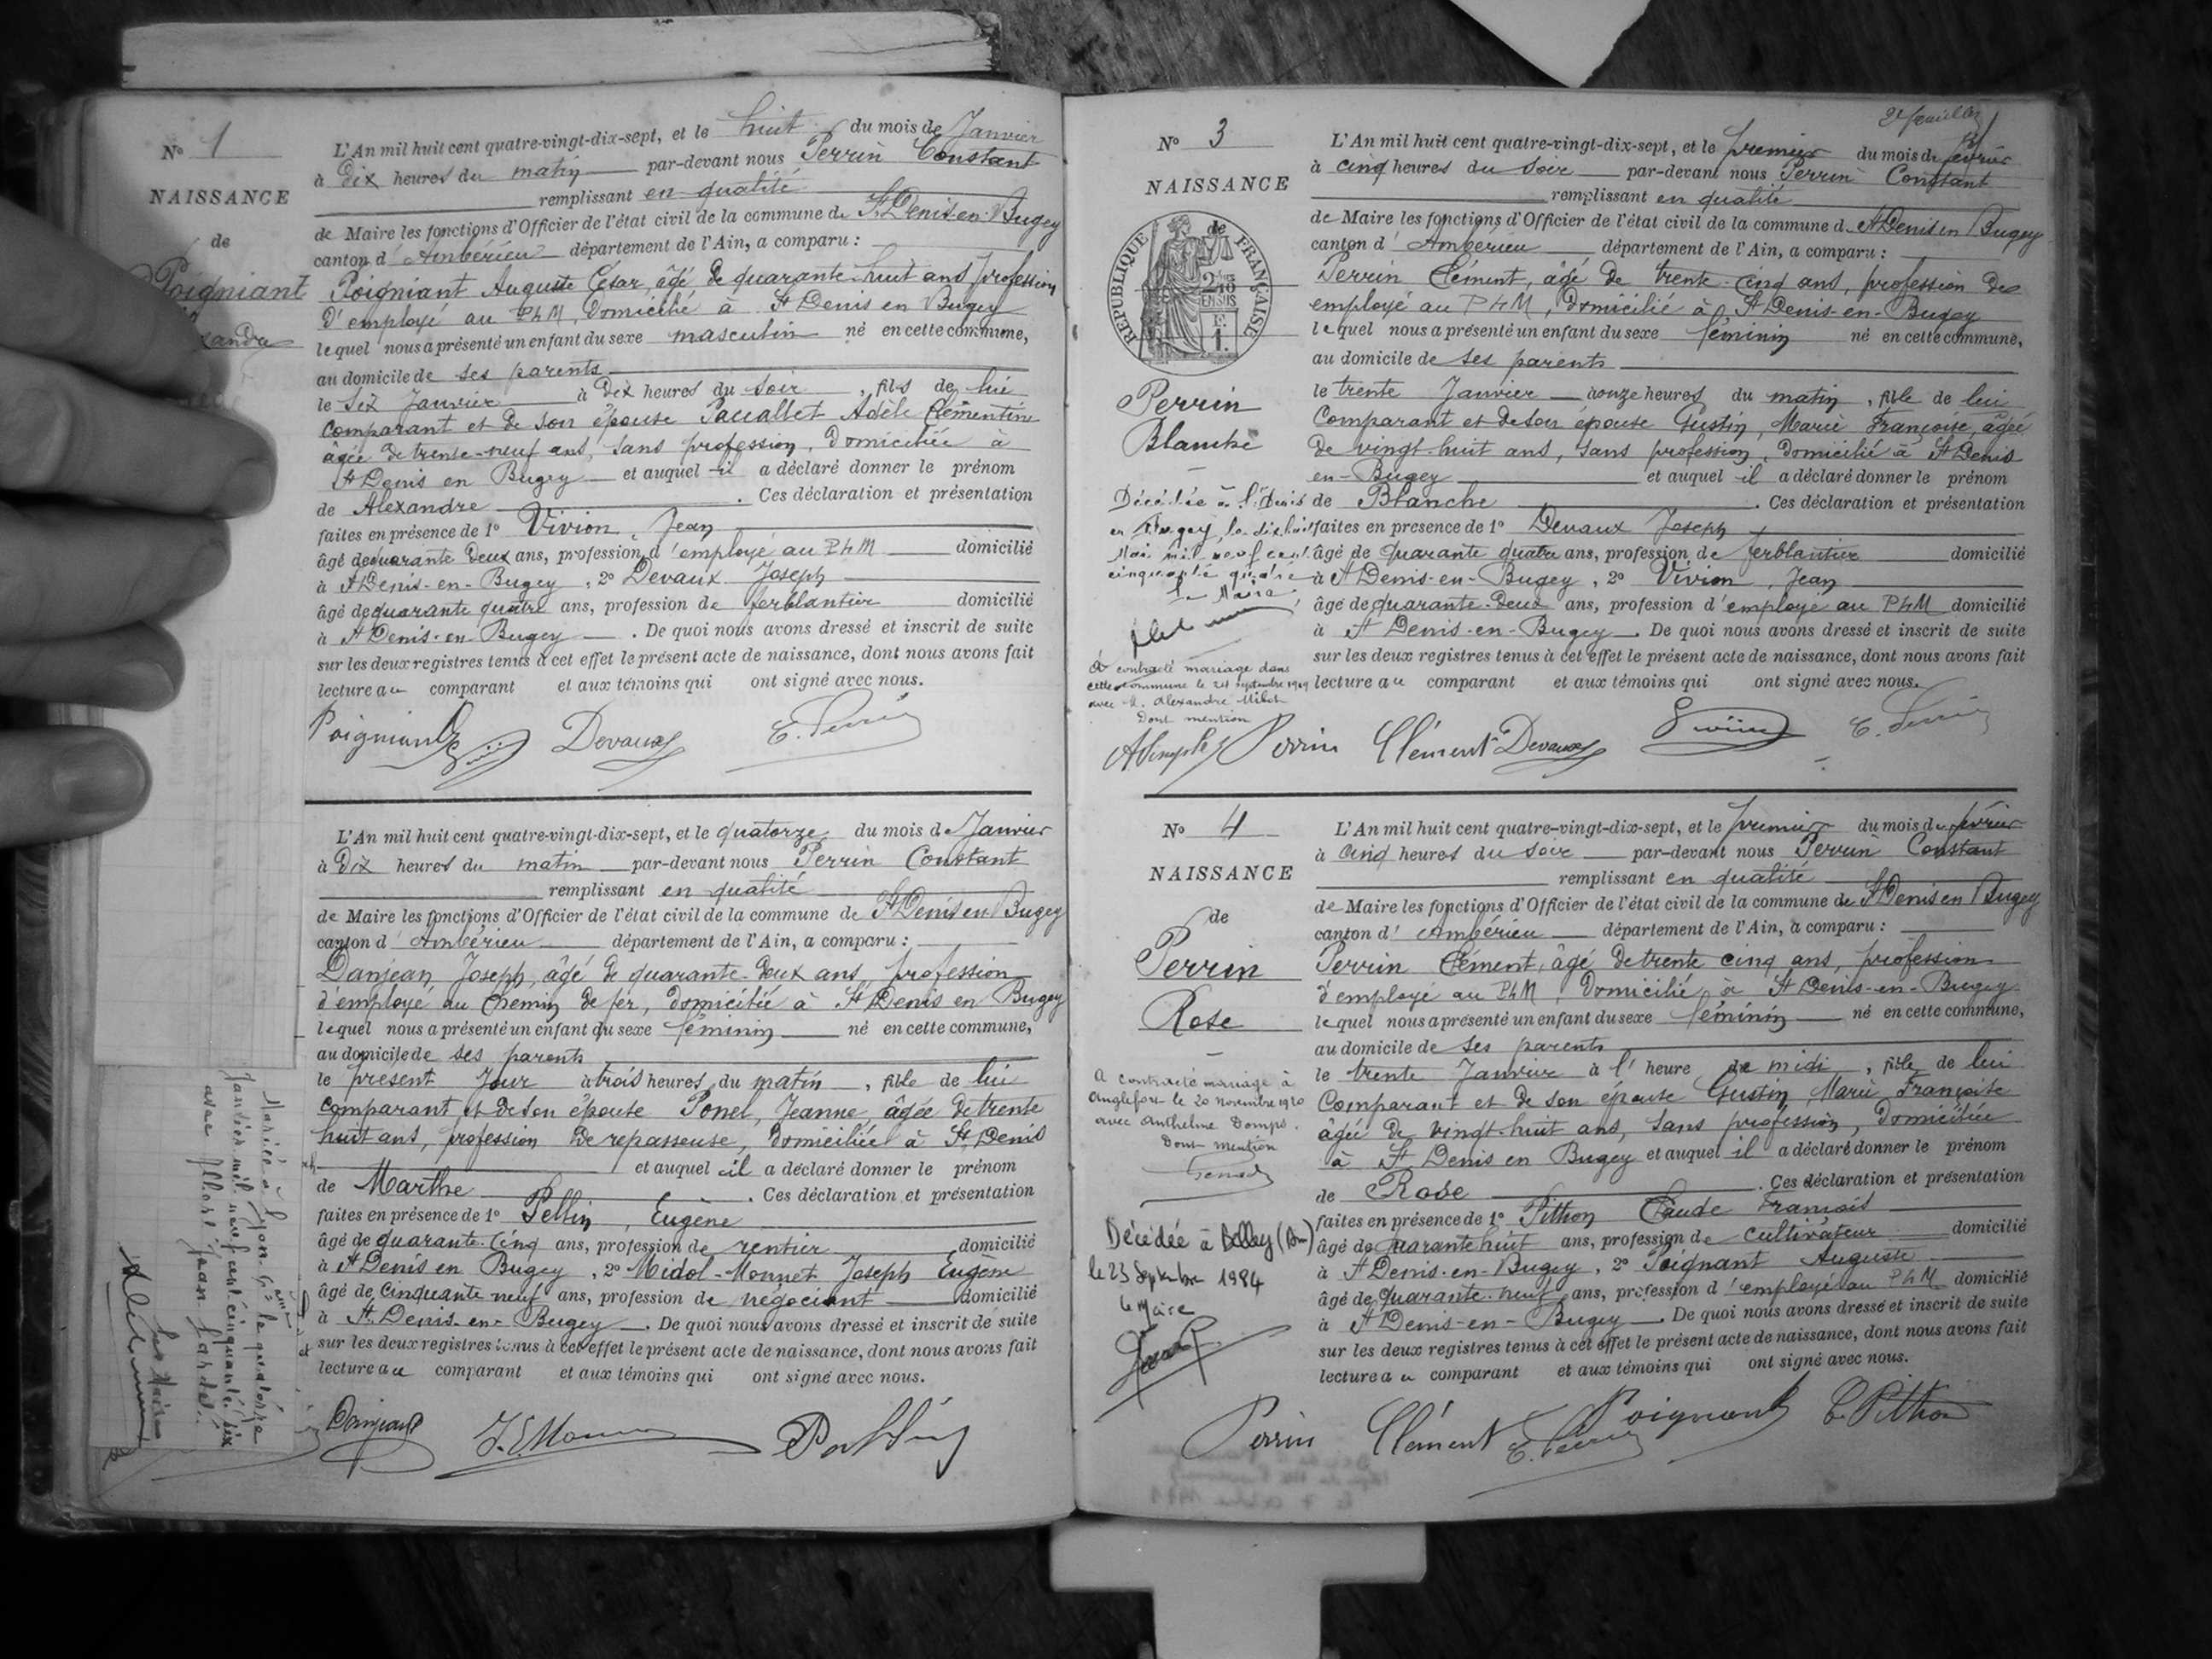 N° 1
NAISSANCE
de
Poigniant
L'An mil huit cent quatre-vingt-dix-sept, et le huit du mois de Janvier
à Dix heures du matin par-devant nous Perrin Constant
remplissant en qualité
de Maire les fonctions d'Officier de l'état civil de la commune de St Denis en Bugey
canton d'Ambérieu département de l'Ain, a comparu :
Poigniant Auguste César, âgé de quarante-huit ans, profession
d'employé au PLM, Domicilié à St Denis en Bugey
lequel nous a présenté un enfant du sexe masculin né en cette commune,
au domicile de ses parents
le Six Janvier à Dix heures du soir, fils de lui
comparant et de son épouse Adèle Clémentine
âgée de trente-neuf ans, sans profession, domiciliée à
St Denis en Bugey et auquel il a déclaré donner le prénom
de Alexandre. Ces déclaration et présentation
faites en présence de 1° Vivion, Jean
âgé de quarante deux ans, profession d'employé au PLM domicilié
à St Denis-en-Bugey, 2° Devaux Joseph
âgé de quarante quatre ans, profession de ferblantier domicilié
à St Denis-en-Bugey. De quoi nous avons dressé et inscrit de suite
sur les deux registres tenus à cet effet le présent acte de naissance, dont nous avons fait
lecture au comparant et aux témoins qui ont signé avec nous.
Poigniant Devaux C. Perrin
L'An mil huit cent quatre-vingt-dix-sept, et le quatorze du mois de Janvier
à Dix heures du matin par-devant nous Perrin Constant
remplissant en qualité
de Maire les fonctions d'Officier de l'état civil de la commune de St Denis en Bugey
canton d'Ambérieu département de l'Ain, a comparu :
Danjean, Joseph, âgé de quarante-deux ans, profession
d'employé au Chemin de fer, domicilié à St Denis en Bugey
lequel nous a présenté un enfant du sexe féminin né en cette commune,
au domicile de ses parents
le présent jour à trois heures du matin, fille de lui
comparant et de son épouse Ponel, Jeanne, âgée de trente
huit ans, profession de repasseuse, domiciliée à St Denis
et auquel il a déclaré donner le prénom
de Marthe. Ces déclaration et présentation
faites en présence de 1° Pellin, Eugène
âgé de quarante-cinq ans, profession de rentier domicilié
à St Denis en Bugey, 2° Midol-Monnet Joseph Eugène
âgé de Cinquante neuf ans, profession de négociant domicilié
à St Denis-en-Bugey. De quoi nous avons dressé et inscrit de suite
sur les deux registres tenus à cet effet le présent acte de naissance, dont nous avons fait
lecture au comparant et aux témoins qui ont signé avec nous.
Mariée à Lyon le quatorze
Janvier mil neuf cent cinquante six
avec Jean
Le Maire
Danjean
N° 3
NAISSANCE
de
REPUBLIQUE FRANÇAISE
Perrin
Blanche
Décédée à St Denis
en Bugey, le dix huit
Mai mil neuf cent
cinquante quatre
Le Maire
A contracté mariage dans
cette commune le 24 septembre 1919
avec M. Alexandre
Dont mention
2e feuillet
L'An mil huit cent quatre-vingt-dix-sept, et le premier du mois de février
à cinq heures du soir par-devant nous Perrin Constant
remplissant en qualité
de Maire les fonctions d'Officier de l'état civil de la commune d St Denis en Bugey
canton d'Ambérieu département de l'Ain, a comparu :
Perrin Clément, âgé de trente-cinq ans, profession de
employé au PLM, Domicilié à St Denis-en-Bugey
lequel nous a présenté un enfant du sexe féminin né en cette commune,
au domicile de ses parents
le trente Janvier à onze heures du matin, fille de lui
Comparant et de son épouse Gustin, Marie Françoise, âgée
de vingt-huit ans, sans profession, domicilié à St Denis
en-Bugey et auquel il a déclaré donner le prénom
de Blanche. Ces déclaration et présentation
faites en présence de 1° Devaux Joseph
âgé de quarante quatre ans, profession de ferblantier domicilié
à St Denis-en-Bugey, 2° Vivion, Jean
âgé de quarante-deux ans, profession d'employé au PLM domicilié
à St Denis-en-Bugey. De quoi nous avons dressé et inscrit de suite
sur les deux registres tenus à cet effet le présent acte de naissance, dont nous avons fait
lecture au comparant et aux témoins qui ont signé avec nous.
Perrin Clément Devaux C. Perrin
N° 4
NAISSANCE
de
Perrin
Rose
A contracté mariage à
Anglefort le 20 novembre 1920
avec Anthelme Domps.
Dont mention
Décédée à Belley (Ain)
le 23 Septembre 1984
le Maire
L'An mil huit cent quatre-vingt-dix-sept, et le premier du mois de février
à cinq heures du soir par-devant nous Perrin Constant
remplissant en qualité
de Maire les fonctions d'Officier de l'état civil de la commune de St Denis en Bugey
canton d'Ambérieu département de l'Ain, a comparu :
Perrin Clément, âgé de trente cinq ans, profession
d'employé au PLM, Domicilié à St Denis-en-Bugey
lequel nous a présenté un enfant du sexe féminin né en cette commune,
au domicile de ses parents
le trente Janvier à l'heure de midi, fille de lui
Comparant et de son épouse Gustin Marie Françoise
âgée de vingt-huit ans, sans profession, domiciliée
à St Denis en Bugey et auquel il a déclaré donner le prénom
de Rose. Ces déclaration et présentation
faites en présence de 1° Pithon Claude François
âgé de quarante huit ans, profession de cultivateur domicilié
à St Denis-en-Bugey, 2° Poignant Auguste
âgé de quarante-neuf ans, profession d'employé au PLM domicilié
à St Denis-en-Bugey. De quoi nous avons dressé et inscrit de suite
sur les deux registres tenus à cet effet le présent acte de naissance, dont nous avons fait
lecture au comparant et aux témoins qui ont signé avec nous.
Perrin Clément C. Perrin Poignant C. Pithon